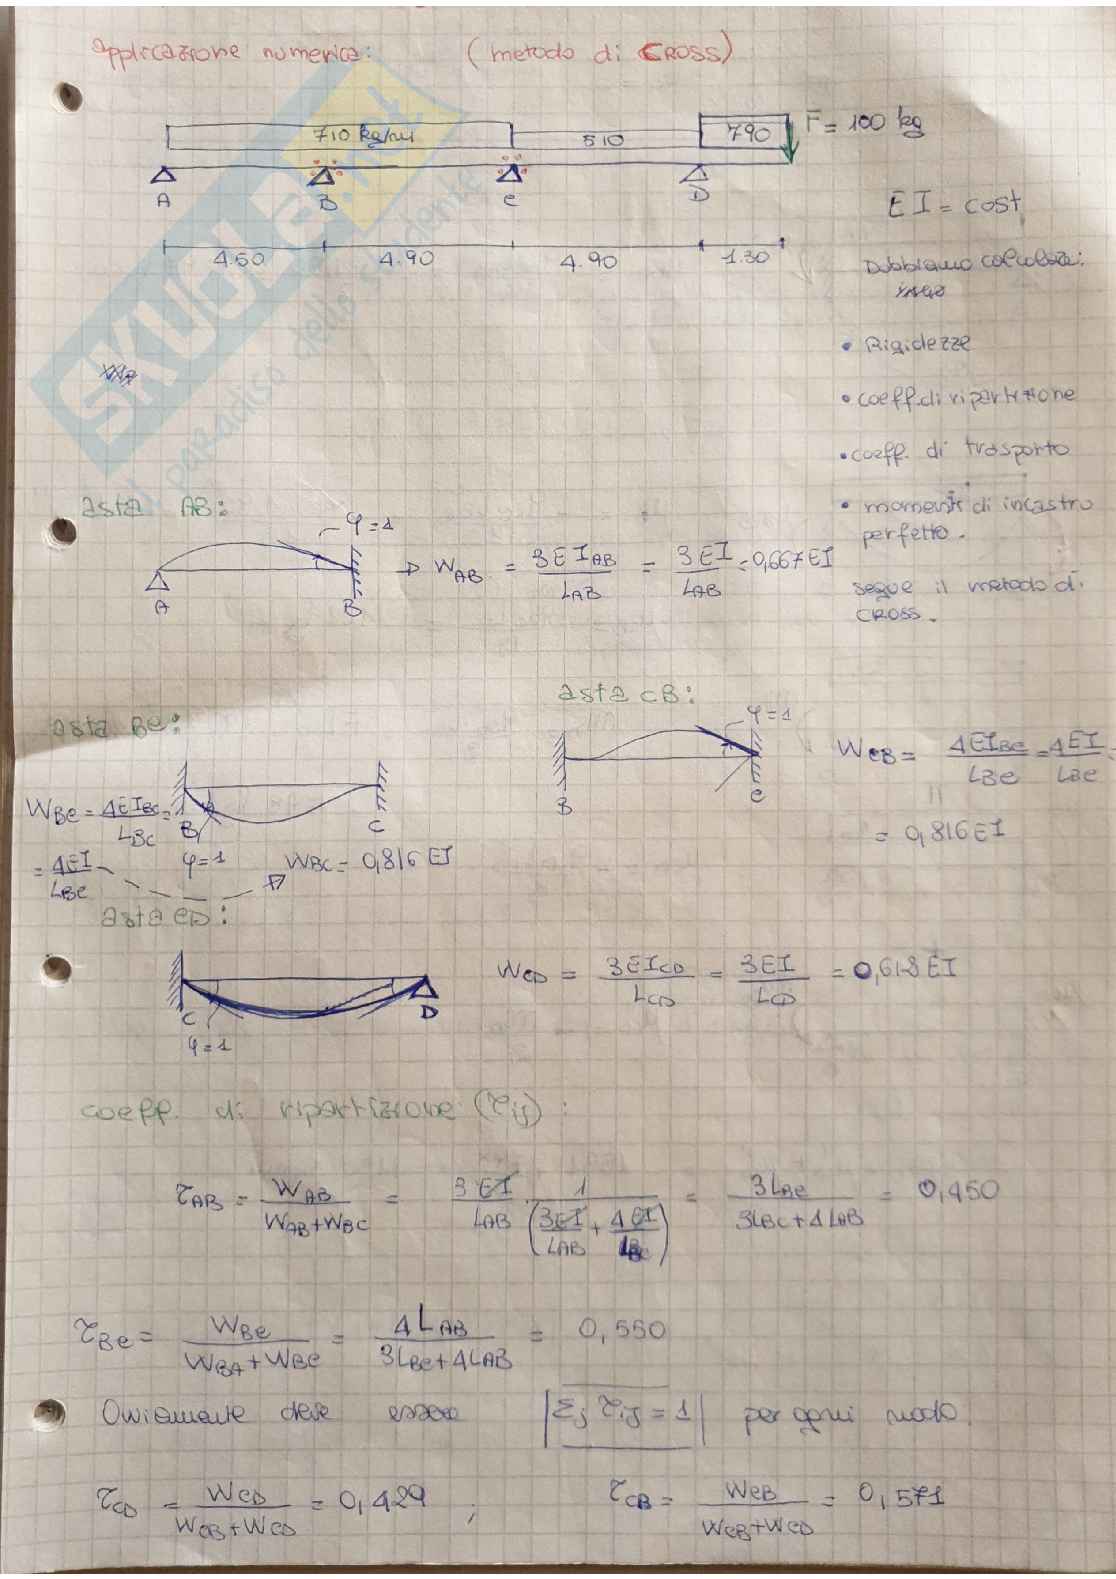 Applicazione numerica: (metodo di CROSS)
710 kg/ml 510 790 F = 100 kg
A B C D
EI = cost
4.50 4.90 4.90 1.30
Dobbiamo calcolare:
• Rigidezze
• coeff. di ripartizione
• coeff. di trasporto
• momenti di incastro
perfetto.
segue il metodo di
CROSS.
SKUOLA.net
il paradiso dello studente
asta AB:
φ=1
A B
→ W_AB = 3EI_AB / L_AB = 3EI / L_AB = 0,667 EI
asta BC:
W_BC = 4EI_BC / L_BC =
= 4EI / L_BC
B C
φ=1
W_BC = 0,816 EI
asta CB:
φ=1
B C
W_CB = 4EI_BC / L_BC = 4EI / L_BC =
= 0,816 EI
asta CD:
C D
φ=1
W_CD = 3EI_CD / L_CD = 3EI / L_CD = 0,618 EI
coeff. di ripartizione (τ_ij):
τ_AB = W_AB / (W_AB + W_BC) = 3EI / L_AB · 1 / (3EI / L_AB + 4EI / L_BC) = 3L_BC / (3L_BC + 4L_AB) = 0,450
τ_BC = W_BC / (W_BA + W_BC) = 4L_AB / (3L_BC + 4L_AB) = 0,550
Ovviamente deve essere |Σ_j τ_ij = 1| per ogni nodo.
τ_CD = W_CD / (W_CB + W_CD) = 0,429 ; τ_CB = W_CB / (W_CB + W_CD) = 0,571